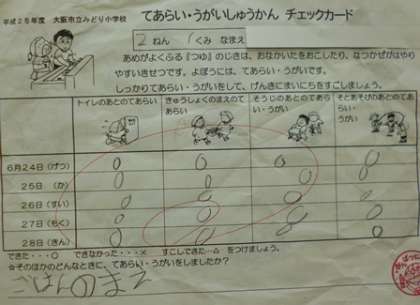 平成25年度 大阪市立みどり小学校
てあらい・うがいしゅうかん チェックカード
2ねん 1くみ なまえ
あめがよくふる『つゆ』のじきは、おなかいたをおこしたり、なつかぜがはやり
やすいきせつです。よぼうには、てあらい・うがいです。
しっかりてあらい・うがいをして、げんきにまいにちをすごしましょう。
トイレのあとのてあらい
きゅうしょくのまえのてあらい
そうじのあとのてあらい・うがい
そとあそびのあとのてあらい・うがい
6月24日(げつ) 0 0 0 0
25日(か) 0 0 0 0
26日(すい) 0 0 0 0
27日(もく) 0 0 0 0
28日(きん) 0 0 0 0
できた・・・○ できなかった・・・× すこしできた・・△ をつけましょう。
☆そのほかのどんなときに、てあらい・うがいをしましたか?
ごはんのまえ